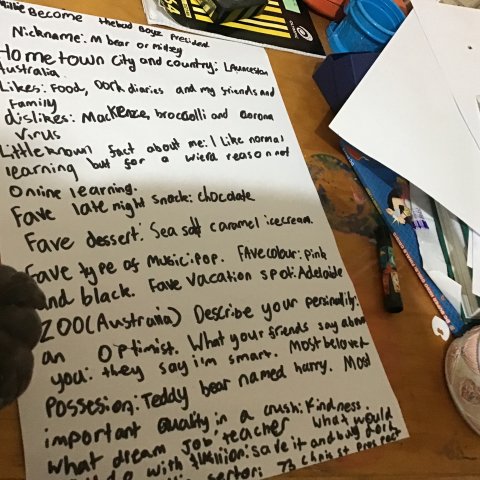 Become the bad Boyz President
Nickname: M bear or Midzey
Home town city and country: Launceston
Australia.
Likes: Food, Dork diaries and my friends and
Family
dislikes: Mackenzie, broccolli and Corona
Virus
Little known fact about me: I like normal
learning but for a wierd reason not
online learning.
Fave late night snack: chocolate
Fave dessert: Sea salt caramel icecream.
Fave type of music: pop. Fave colour: pink
and black. Fave vacation spot: Adelaide
ZOO(Australia) Describe your personality:
an optimist. What your friends say about
you: they say i'm smart. Most beloved
Possesion: Teddy bear named harry. Most
important quality in a crush: Kindness.
what dream job: teacher what would
with $1 million: save it and buy dork